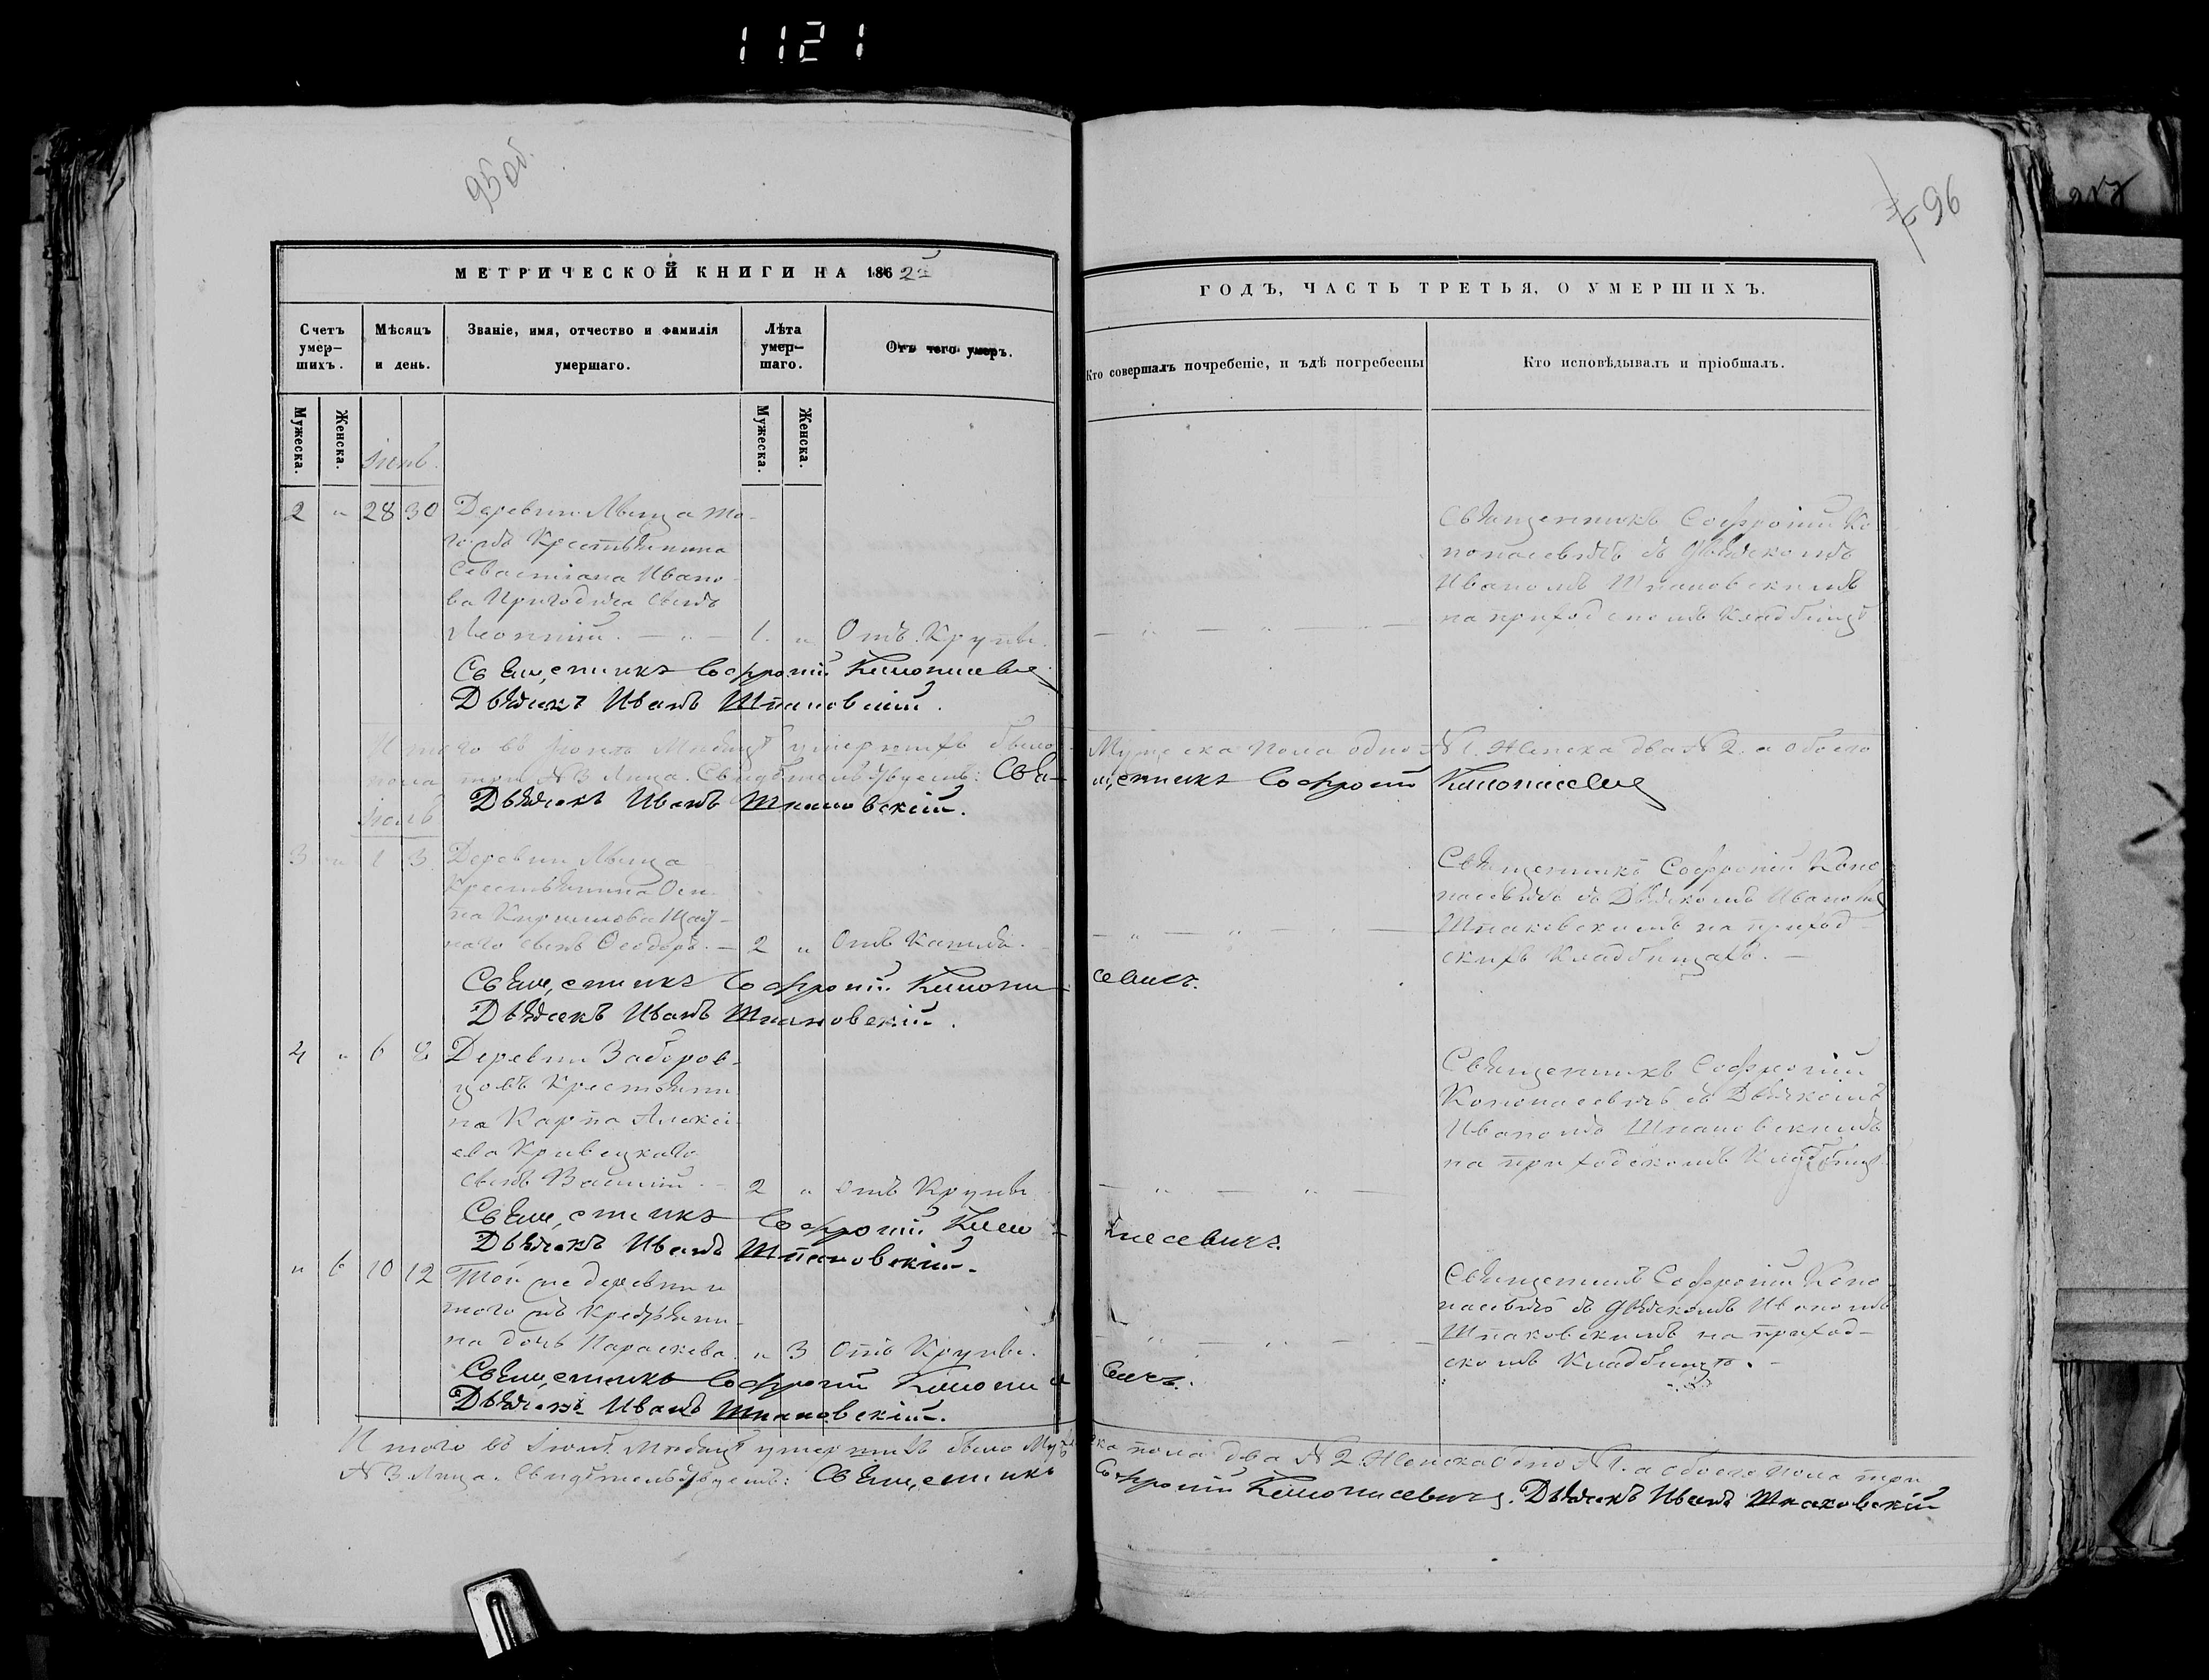 1121
95 об.
96
МЕТРИЧЕСКОЙ КНИГИ НА 1862й
ГОДЪ, ЧАСТЬ ТРЕТЬЯ, О УМЕРШИХЪ.
Счетъ умер-
шихъ.
Мѣсяцъ
и день.
Званіе, имя, отчество и фамилія
умершаго.
Лѣта
умер-
шаго.
Отъ чего умеръ.
Кто совершалъ почребеніе, и ъдѣ погребены
Кто исповѣдывалъ и пріобшалъ.
Мужеска.
Женска.
Мужеска.
Женска.
2 " 28 30 Деревни
Крестьянина
Севастіана Ивано-
ва сынъ
Леонтій. — " — 1. " Отъ Крупы.
Священникъ Софроній Ко
нопасевичъ съ Дьячкомъ
Иваномъ Шпаковскимъ
на приходскомъ Кладбищѣ
Священникъ Софроній Конопасевичъ
Дьячекъ Иванъ Шпаковскій.
Итого въ Іюнѣ Мѣсяцѣ умершихъ было Мужеска пола одно № 1. Женска два № 2. а обоего
пола три № 3 Лица. Свидѣтельствуемъ: Священникъ Софроній Конопасевичъ
Дьячекъ Иванъ Шпаковскій.
Іюль
3 " 1 3 Деревни
Крестьянина Оси-
па
сынъ Ѳеодоръ. — 2 " Отъ Кашля.
Священникъ Софроній Коно
пасевичъ съ Дьячкомъ Иваномъ
Шпаковскимъ на приход-
скихъ Кладбищахъ. —
Священникъ Софроній Конопасевичъ.
Дьячекъ Иванъ Шпаковскій.
4 " 6 8 Деревни Заборов-
цовъ Крестьяни
на Карпа Алексі-
ева Кривецкаго
сынъ Василій. — 2 " Отъ Крупы
Священникъ Софроній
Конопасевичъ съ Дьячкомъ
Иваномъ Шпаковскимъ
на приходскомъ Кладбищѣ
Священникъ Софроній Конопасевичъ.
Дьячекъ Иванъ Шпаковскій.
" 6 10 12 Той же деревни и
того жъ Крестьяни-
на дочь Параскева. " 3 Отъ Крупы.
Священникъ Софроній Коно
пасевичъ съ Дьячкомъ Иваномъ
Шпаковскимъ на приход-
скомъ Кладбищѣ. —
Священникъ Софроній Конопасевичъ.
Дьячекъ Иванъ Шпаковскій.
Итого въ Іюлѣ Мѣсяцѣ умершихъ было Мужеска пола два № 2. Женска одно № 1. а обоего пола три
№ 3 Лица. Свидѣтельствуемъ: Священникъ Софроній Конопасевичъ. Дьячекъ Иванъ Шпаковскій